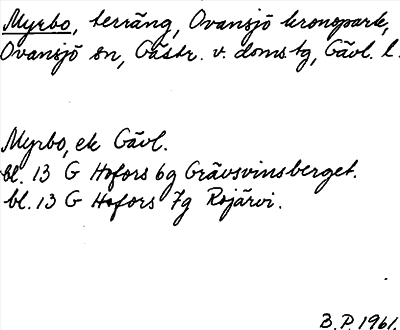 Myrbo, terräng, Ovansjö kronopark,
Ovansjö sn, Gästr. v. doms.tg, Gävl. l.
Myrbo, ek Gävl.
bl. 13 G Hofors 6g Grävsvinsberget.
bl. 13 G Hofors 7g Rojärvi.
B.P. 1961.